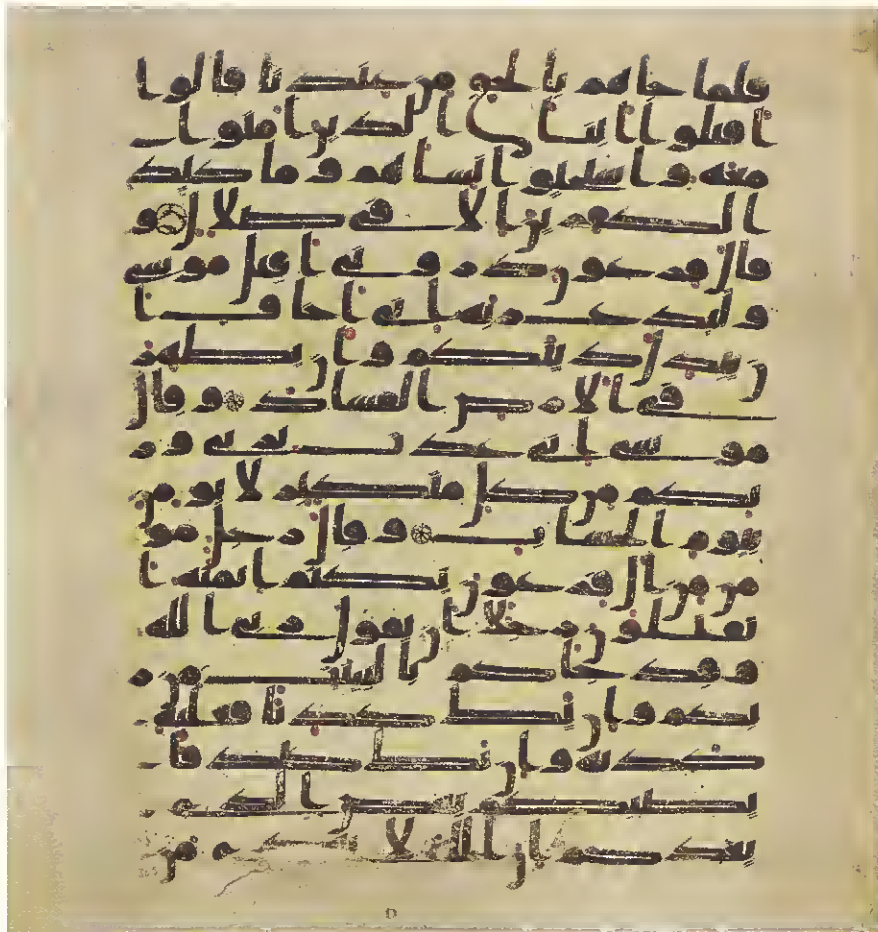 فلما جاهم بالحق من عندنا قالوا
اقتلوا ابنا الذين امنوا
معه و استحيوا نساهم و ما كيد
الكفرين الا في ضلال و
قال فرعون ذروني اقتل موسى
وليدع ربه اني اخاف ا
ن يبدل دينكم او ان يظهر
في الارض الفساد وقال
موسى اني عذت بربي ور
بكم من كل متكبر لا يومن
بيوم الحساب وقال رجل مو
من من ال فرعون يكتم ايمنه ا
تقتلون رجلا ان يقول ربي الله
وقد جاكم بالبينت من ر
بكم وان يك كذبا فعليه
كذبه وان يك صادقا
يصبكم بعض الذي
يعدكم ان الله لا يهدي من
D